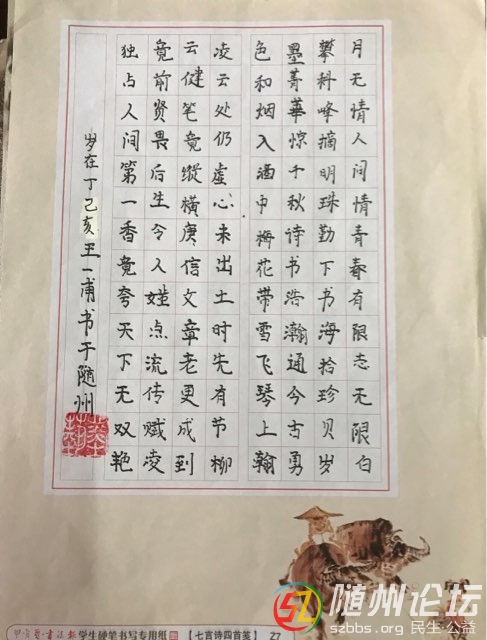 独占人间第一香竟夸天下无双艳
竟前贤畏后生令人嗤点流传赋凌
云健笔竟纵横庚信文章老更成到
凌云处仍虚心未出土时先有节柳
色和烟入酒中梅花带雪飞琴上翰
墨菁華惊千秋诗书浩瀚通今古勇
攀科峰摘明珠勤下书海拾珍贝岁
月无情人间情青春有限志无限白
岁在丁己亥王一甫书于随州
书法报学生硬笔书写专用纸
【七言诗四首笺】
Z7
随州论坛
szbbs.org 民生 公益